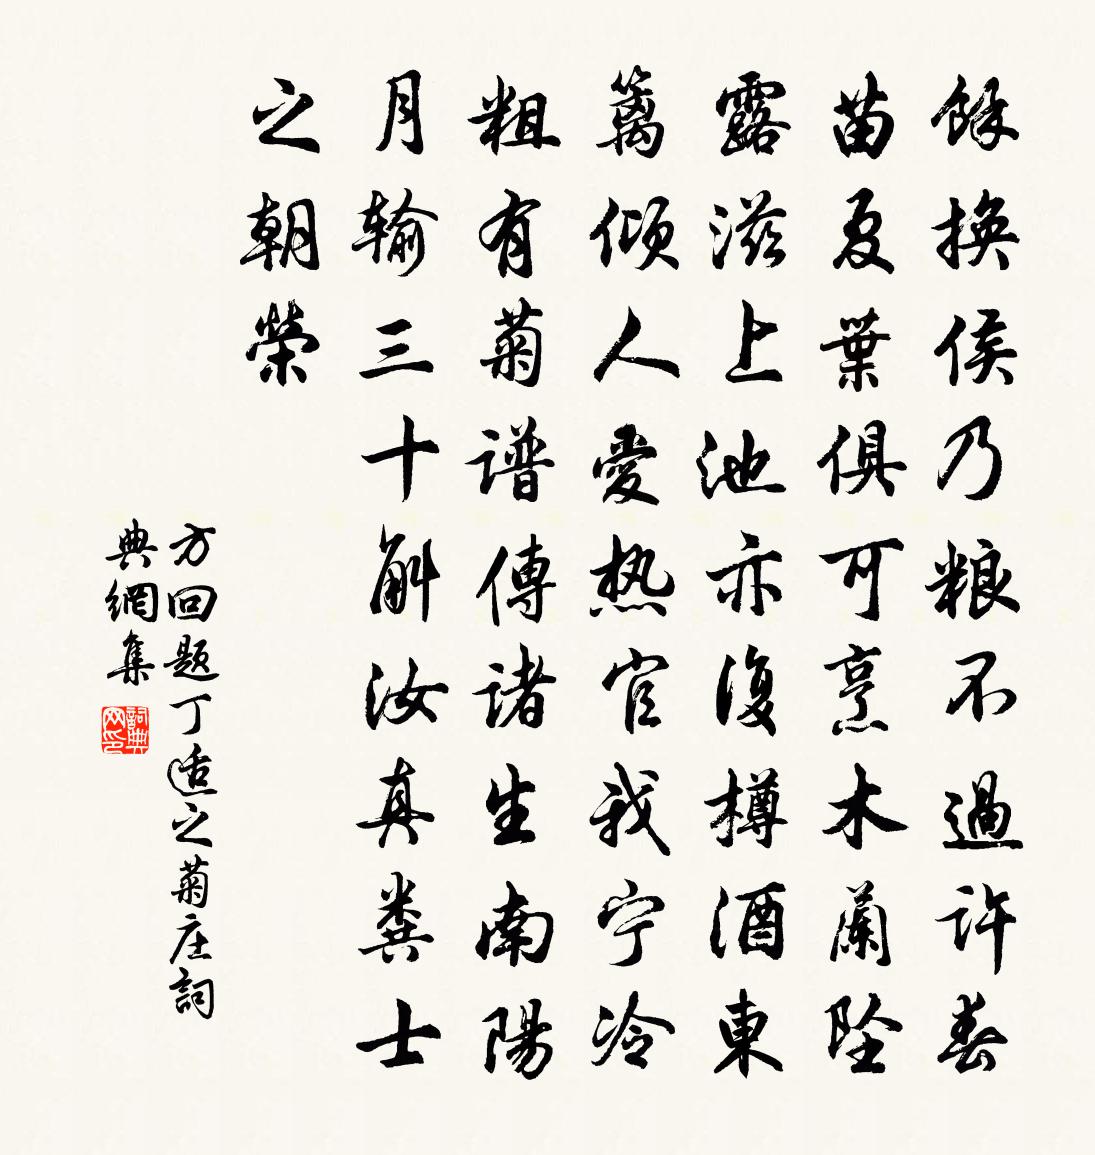 餘換侯乃粮不過許春
苗夏葉俱可烹木蘭墜
露滋上池亦復樽酒東
籬傾人愛热官我宁冷
粗有菊谱傳诸生南陽
月输三十斛汝真粪士
之朝榮
方回题丁适之菊庄詞
典網集
詞典网印